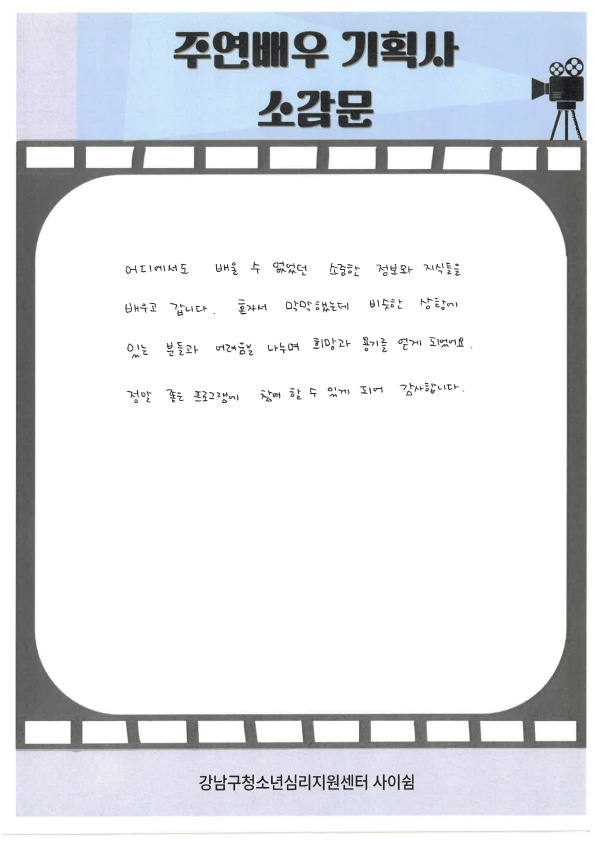 주연배우 기획사
소감문
어디에서도 배울 수 없었던 소중한 정보와 지식들을
배우고 갑니다. 혼자서 막막했는데 비슷한 상황에
있는 분들과 어려움을 나누며 희망과 용기를 얻게 되었어요.
정말 좋은 프로그램에 참여 할 수 있게 되어 감사합니다.
강남구청소년심리지원센터 사이쉼